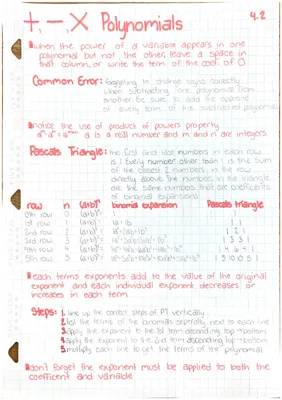 4.2
+, -, × Polynomials
when the power of a variable appears in one
polynomial but not the other, leave a space in
that column, or write the term of the coef. of 0
Common Error: forgetting to change signs correctly
when subtracting one polynomial from
another be sure to add the opposite
of every term of the subtracted polynomial
notice the use of product of powers property
a is a real number and m and n are integers
Pascals Triangle: the first and last numbers in each row
is 1 every number other than 1 is the sum
of the closest 2 numbers in the row
directly above the numbers in the triangle
are the same numbers that are coefficients
of binomial expansions
row n (a+b)ⁿ binomial expansion Pascals triangle
0th row 0 (a+b)⁰= 1 1
1st row 1 (a+b)¹= 1a+1b 1 1
2nd row 2 (a+b)²= 1a²+2ab+1b² 1 2 1
3rd row 3 (a+b)³= 1 3 3 1
4th row 4 (a+b)⁴= 1 4 6 4 1
5th row 5 (a+b)⁵= 1 5 10 10 5 1
each terms exponents add to the value of the original
exponent and each individual exponent decreases or
increases in each term
Steps: 1. line up the correct steps of PT vertically
2. list the terms of the binomials seperatly next to each line
3. apply the exponent to the 1st term descending top → bottom
4. apply the exponent to the 2nd term ascending top → bottom
5. multiply each line to get the terms of the polynomial
don't forget the exponent must be applied to both the
coefficent and variable